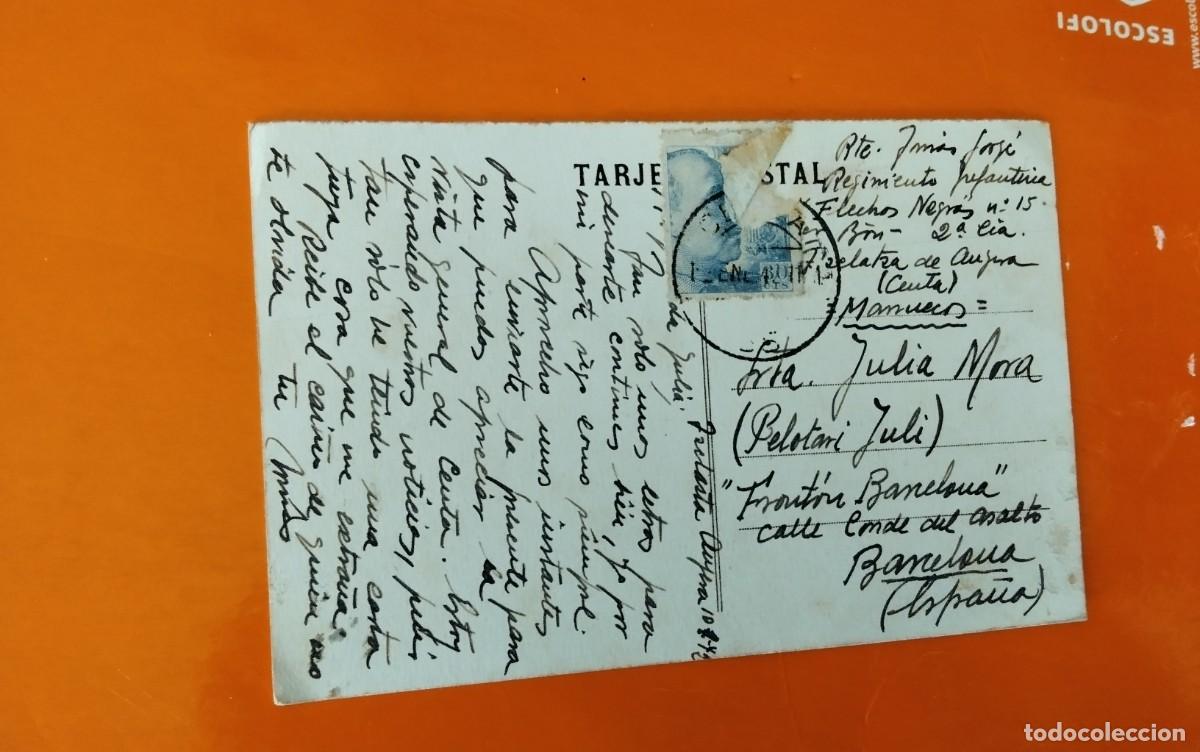 ESCOLOFI
www.escol
TARJE STAL
Rte. Jorge
Regimiento Infanteria
Flechas Negras nº 15
Bón - 2ª Cia.
de Anyera
(Ceuta)
= Marruecos =
Srta. Julia Mora
(Pelotari Juli)
"Frontón Barcelona"
calle Conde del Asalto
Barcelona
(España)
ENE
PTS
Anyera 10
da Juli:
Tan sólo unos letras para
desearte continues bien, yo por
mi parte sigo como siempre.
Aprovecho unos instantes
para enviarte la presente para
que puedas apreciar la
vista general de Ceuta. Estoy
esperando vuestras noticias, pués
tan sólo he tenido una carta
tuya cosa que me extraña.
Recibe el cariño de quien no
te olvida tu
todocoleccion